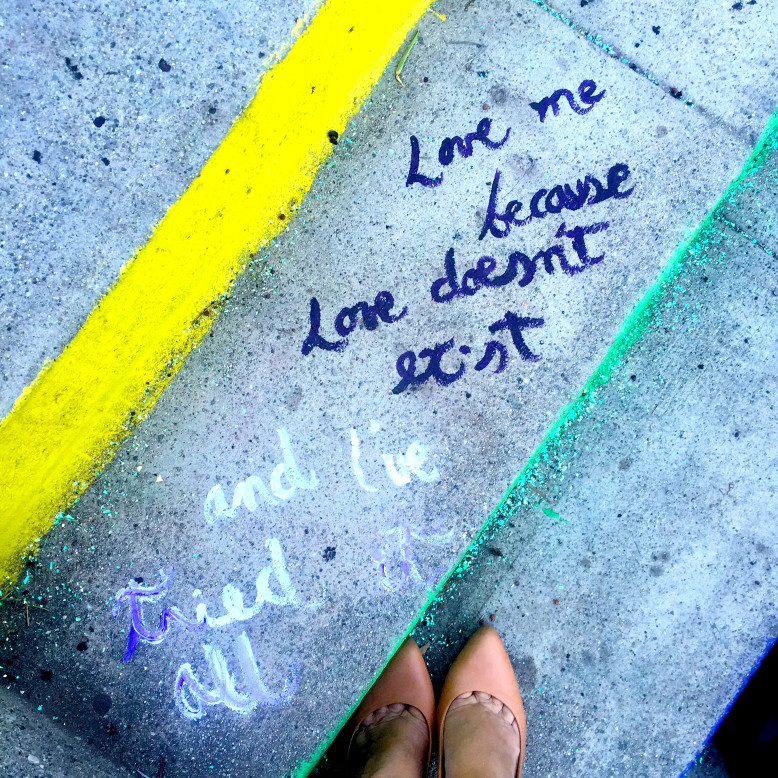 Love me
because
Love doesn't
exist
and I've
tried it
all